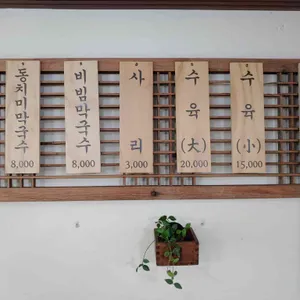 동치미막국수
8,000
비빔막국수
8,000
사리
3,000
수육(大)
20,000
수육(小)
15,000